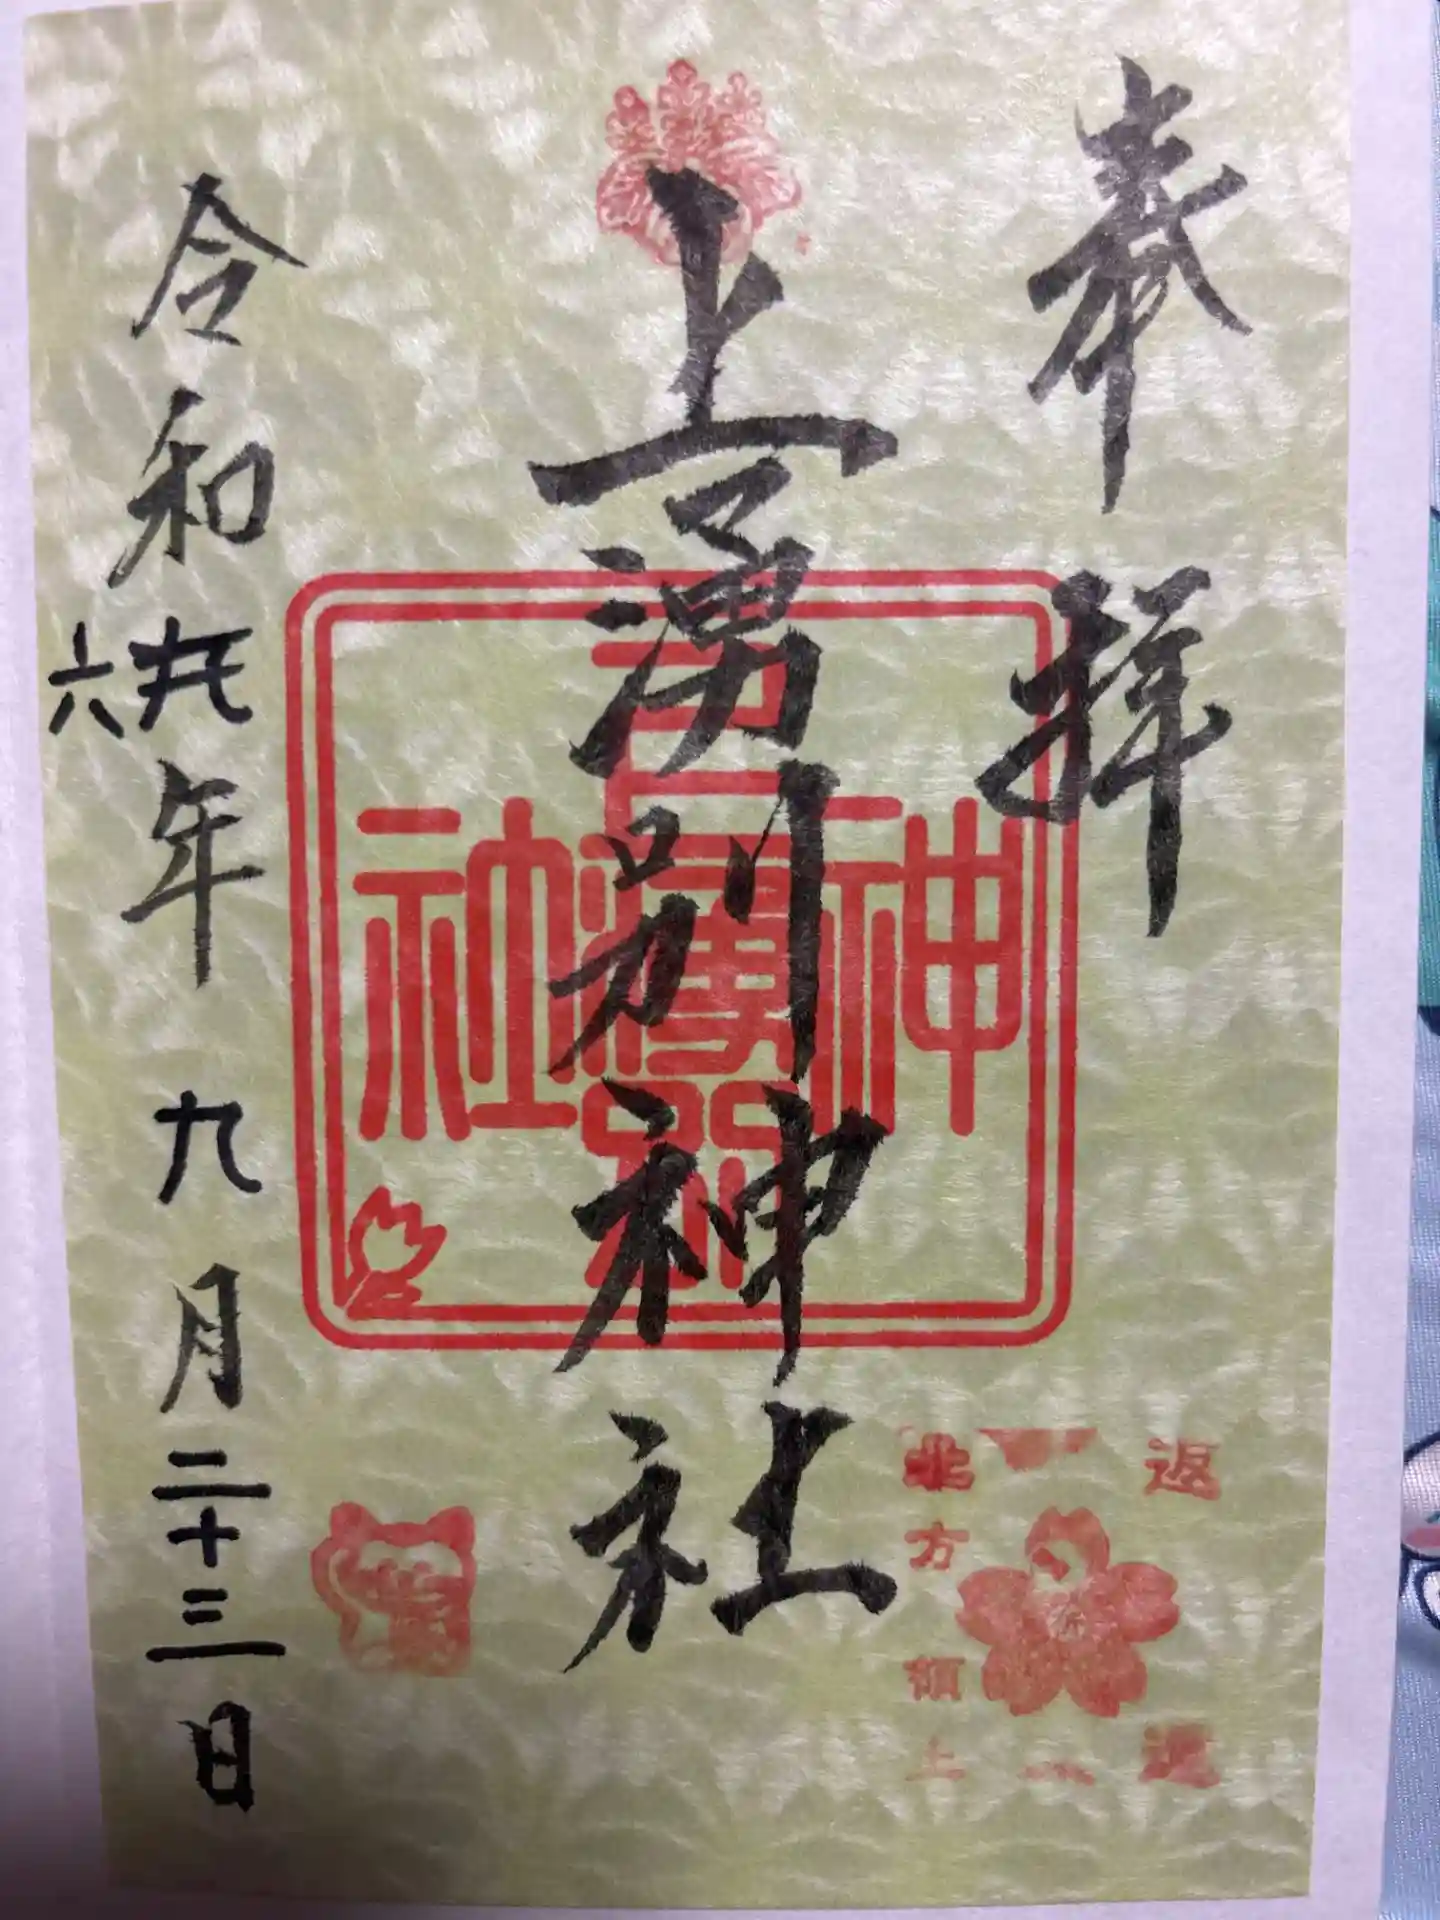 奉拝
上湧別神社
令和六年九月二十三日
上湧別
神
社
返還
北方領土